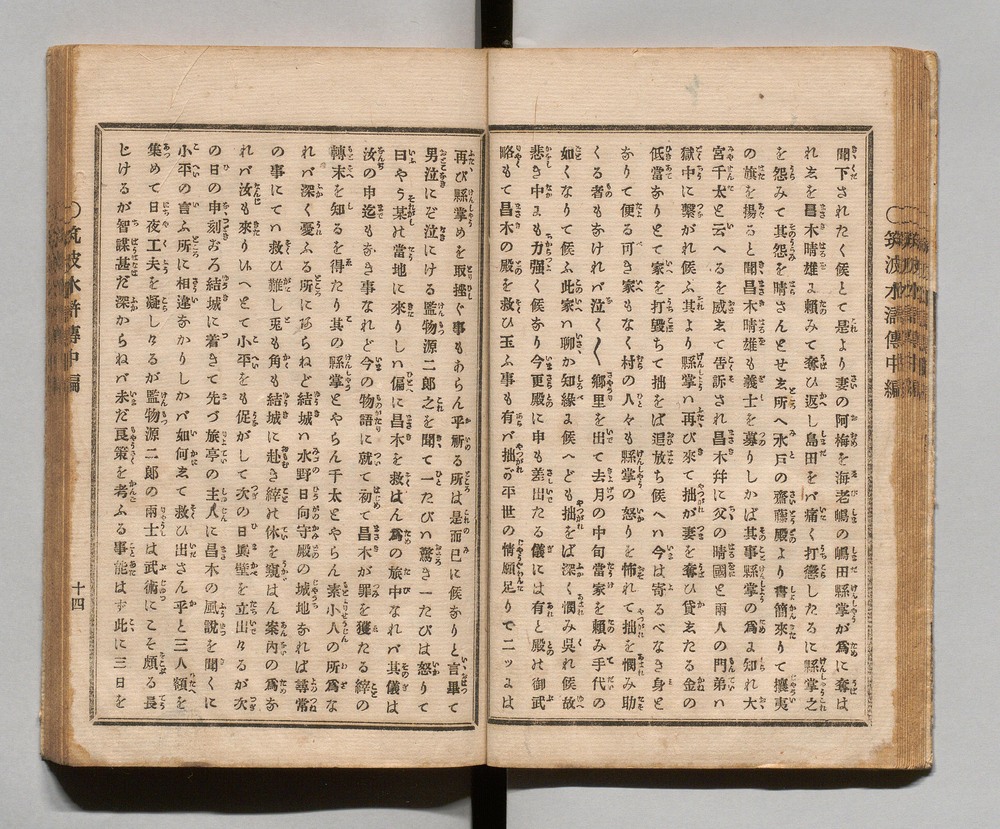 聞下されたく候とて是より妻の阿梅を海老嶋の嶋田縣掌が爲に奪は
れゑを昌木晴雄ゟ頼みて奪ひ返し島田をバ痛く打懲したるに縣掌之
を怨みて其怨を晴さんとせゑ所へ水戸の齋藤殿より書簡來りて攘夷
の旗を揚ると聞昌木晴雄も義士を募りしかば其事縣掌の爲ゟ知れ大
宮千太と云へるを威ゑて告訴され昌木幷に父の晴國と兩人の門弟ハ
獄中に繫がれ候ふ其より縣掌ハ再び來て拙が妻を奪ひ貸ゑたる金の
低當なりとて家を打毀ちて拙をば追放ち候へハ今は寄るべなき身と
なりて便る可き家もなく村の人々も縣掌の怒りを怖れて拙を憫み助
くる者もなけれバ泣く〱鄕里を出て去月の中旬當家を賴み手代の
如くなりて候ふ此家ハ聊か知緣ゟ候へども拙をば深く憫み吳れ候故
悲き中ゟも力强く候なり今更殿に申も差出たる儀には有と殿は御武
略もて昌木の殿を救ひ玉ふ事も有バ拙が平世の情願足りて二ッゟは
再び縣掌めを取挫ぐ事もあらん乎斬る所は是而已に候なりと言畢て
男泣にぞ泣にける監物源二郎之を聞て一たびハ驚き一たびは怒りて
曰やう某は當地に來りしハ偏に昌木を救はん爲の旅中なれバ其儀は
汝の申迄もなき事なれど今の物語に就て初て昌木が罪を獲たる縡の
轉末を知るを得たり其の縣掌とやらん千太とやらん素小人の所爲な
れバ深く憂ふる所にあらねど結城ハ水野日向守殿の城地なれば尋常
の事にてハ救ひ難し兎も角も結城に赴き縡の休を窺はん案内の爲な
れバ汝も來りひへとて小平を促がして次の日奧壁を立出々るが次
の日の申刻おろ結城に着きて先づ旅亭の主人に昌木の風說を聞くに
小平の言ふ所に相違なかりしかバ如何ゑて救ひ出さん乎と三人額を
集めて日夜工夫を凝し々るが監物源二郎の兩士は武術にこそ頗る長
じけるが智謀甚だ深からねバ未だ良策を考ふる事能はず此に三日を
○筑波水滸傳中編
十四
○筑波水滸傳中編